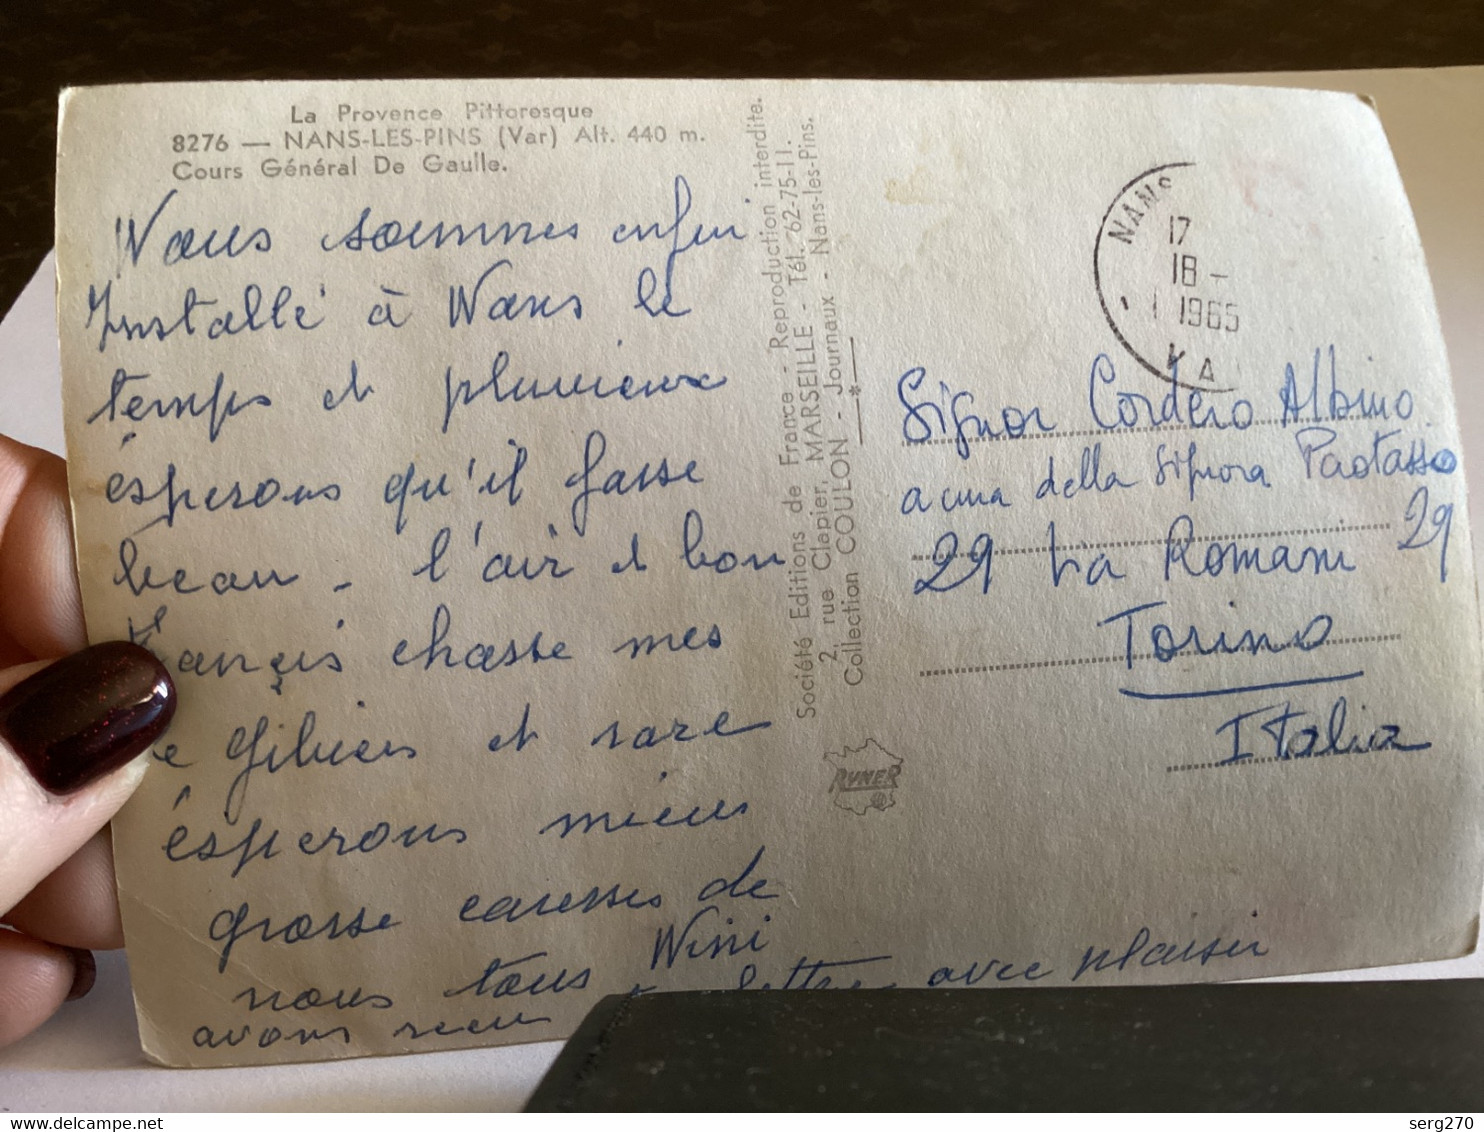 La Provence Pittoresque
8276 — NANS-LES-PINS (Var) Alt. 440 m.
Cours Général De Gaulle.
Nous sommes enfin
Installé à Nans le
temps et pluvieux
ésperons qu'il fasse
beau - l'air et bon
chasse mes
le gibiers et rare
ésperons mieux
grosse caresses de
nous tous Nini
avons recu lettre avec plaisir
Société Editions de France - Reproduction interdite.
2, rue Clapier, MARSEILLE - Tél. 62-75-11.
Collection COULON - Journaux - Nans-les-Pins.
RYNER
NANS
17
18 -
1 1965
VA
Signor Cordero Albino
a cura della Signora Paotasso
29 Via Romani 29
Torino
Italia
serg270
delcampe.net